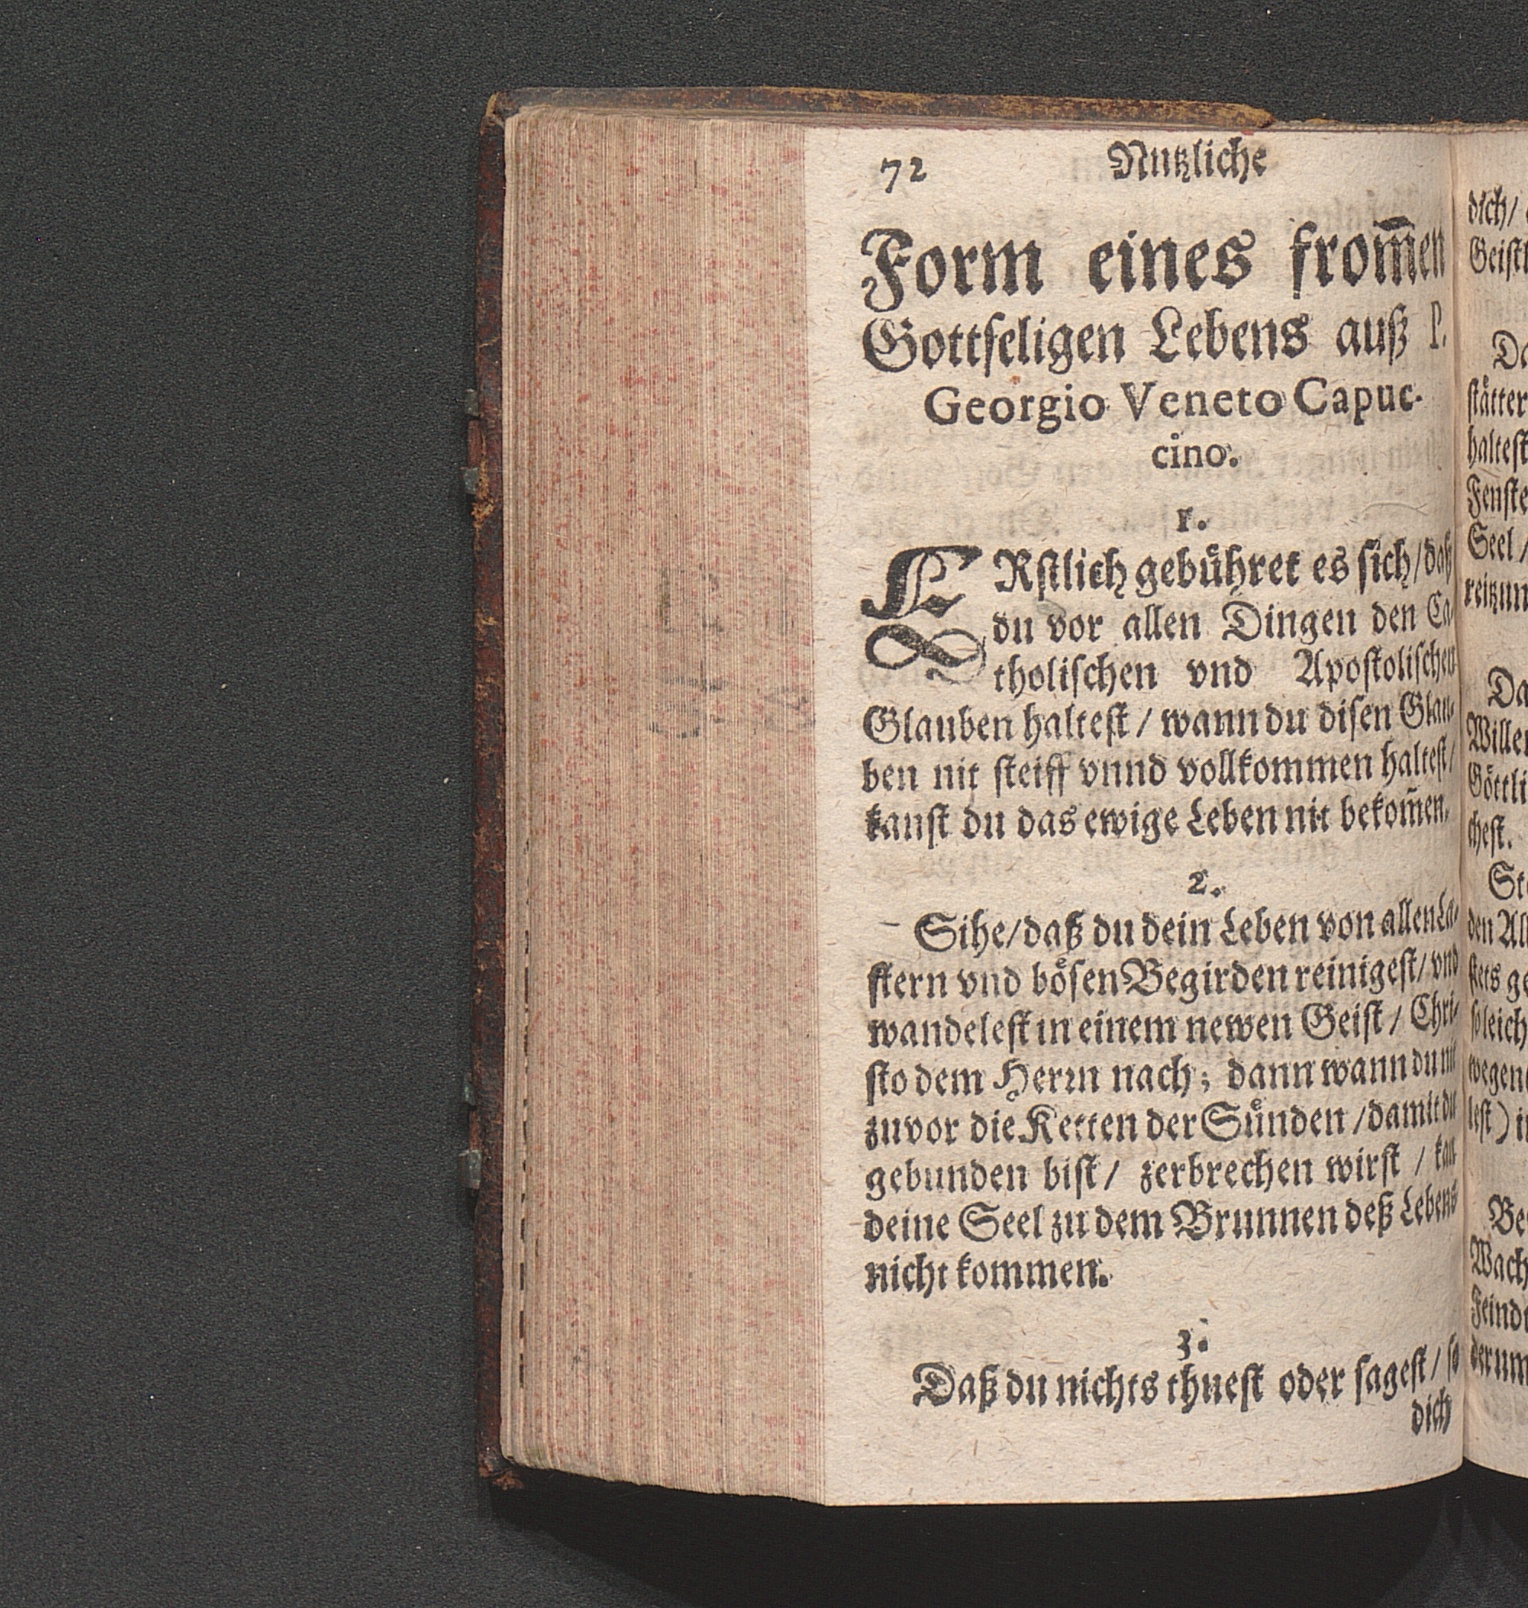 72 Nutzliche
Form eines from̃en
Gottseligen Lebens auß P.
Georgio Veneto Capuc-
cino.
1.
ERstlich gebühret es sich/ daß
du vor allen Dingen den Ca-
tholischen vnd Apostolischen
Glauben haltest / wann du disen Glau-
ben nit steiff vnnd vollkommen haltest/
kanst du das ewige Leben nit bekom̃en.
2.
Sihe/ daß du dein Leben von allen La-
stern vnd bösen Begirden reinigest/ vnd
wandelest in einem newen Geist / Chri-
sto dem Herrn nach; dann wann du nit
zuvor die Ketten der Sünden / damit du
gebunden bist / zerbrechen wirst / kan
deine Seel zu dem Brunnen deß Lebens
nicht kommen.
3.
Daß du nichts thuest oder sagest / so
dich
dich/
Geistl
Da
stätter
haltest
Fenste
Seel /
reitzun
Da
Willen
Göttli
chest.
Ste
den All
stets ge
wegen
lest) in
Be
Wach
Feind
derum